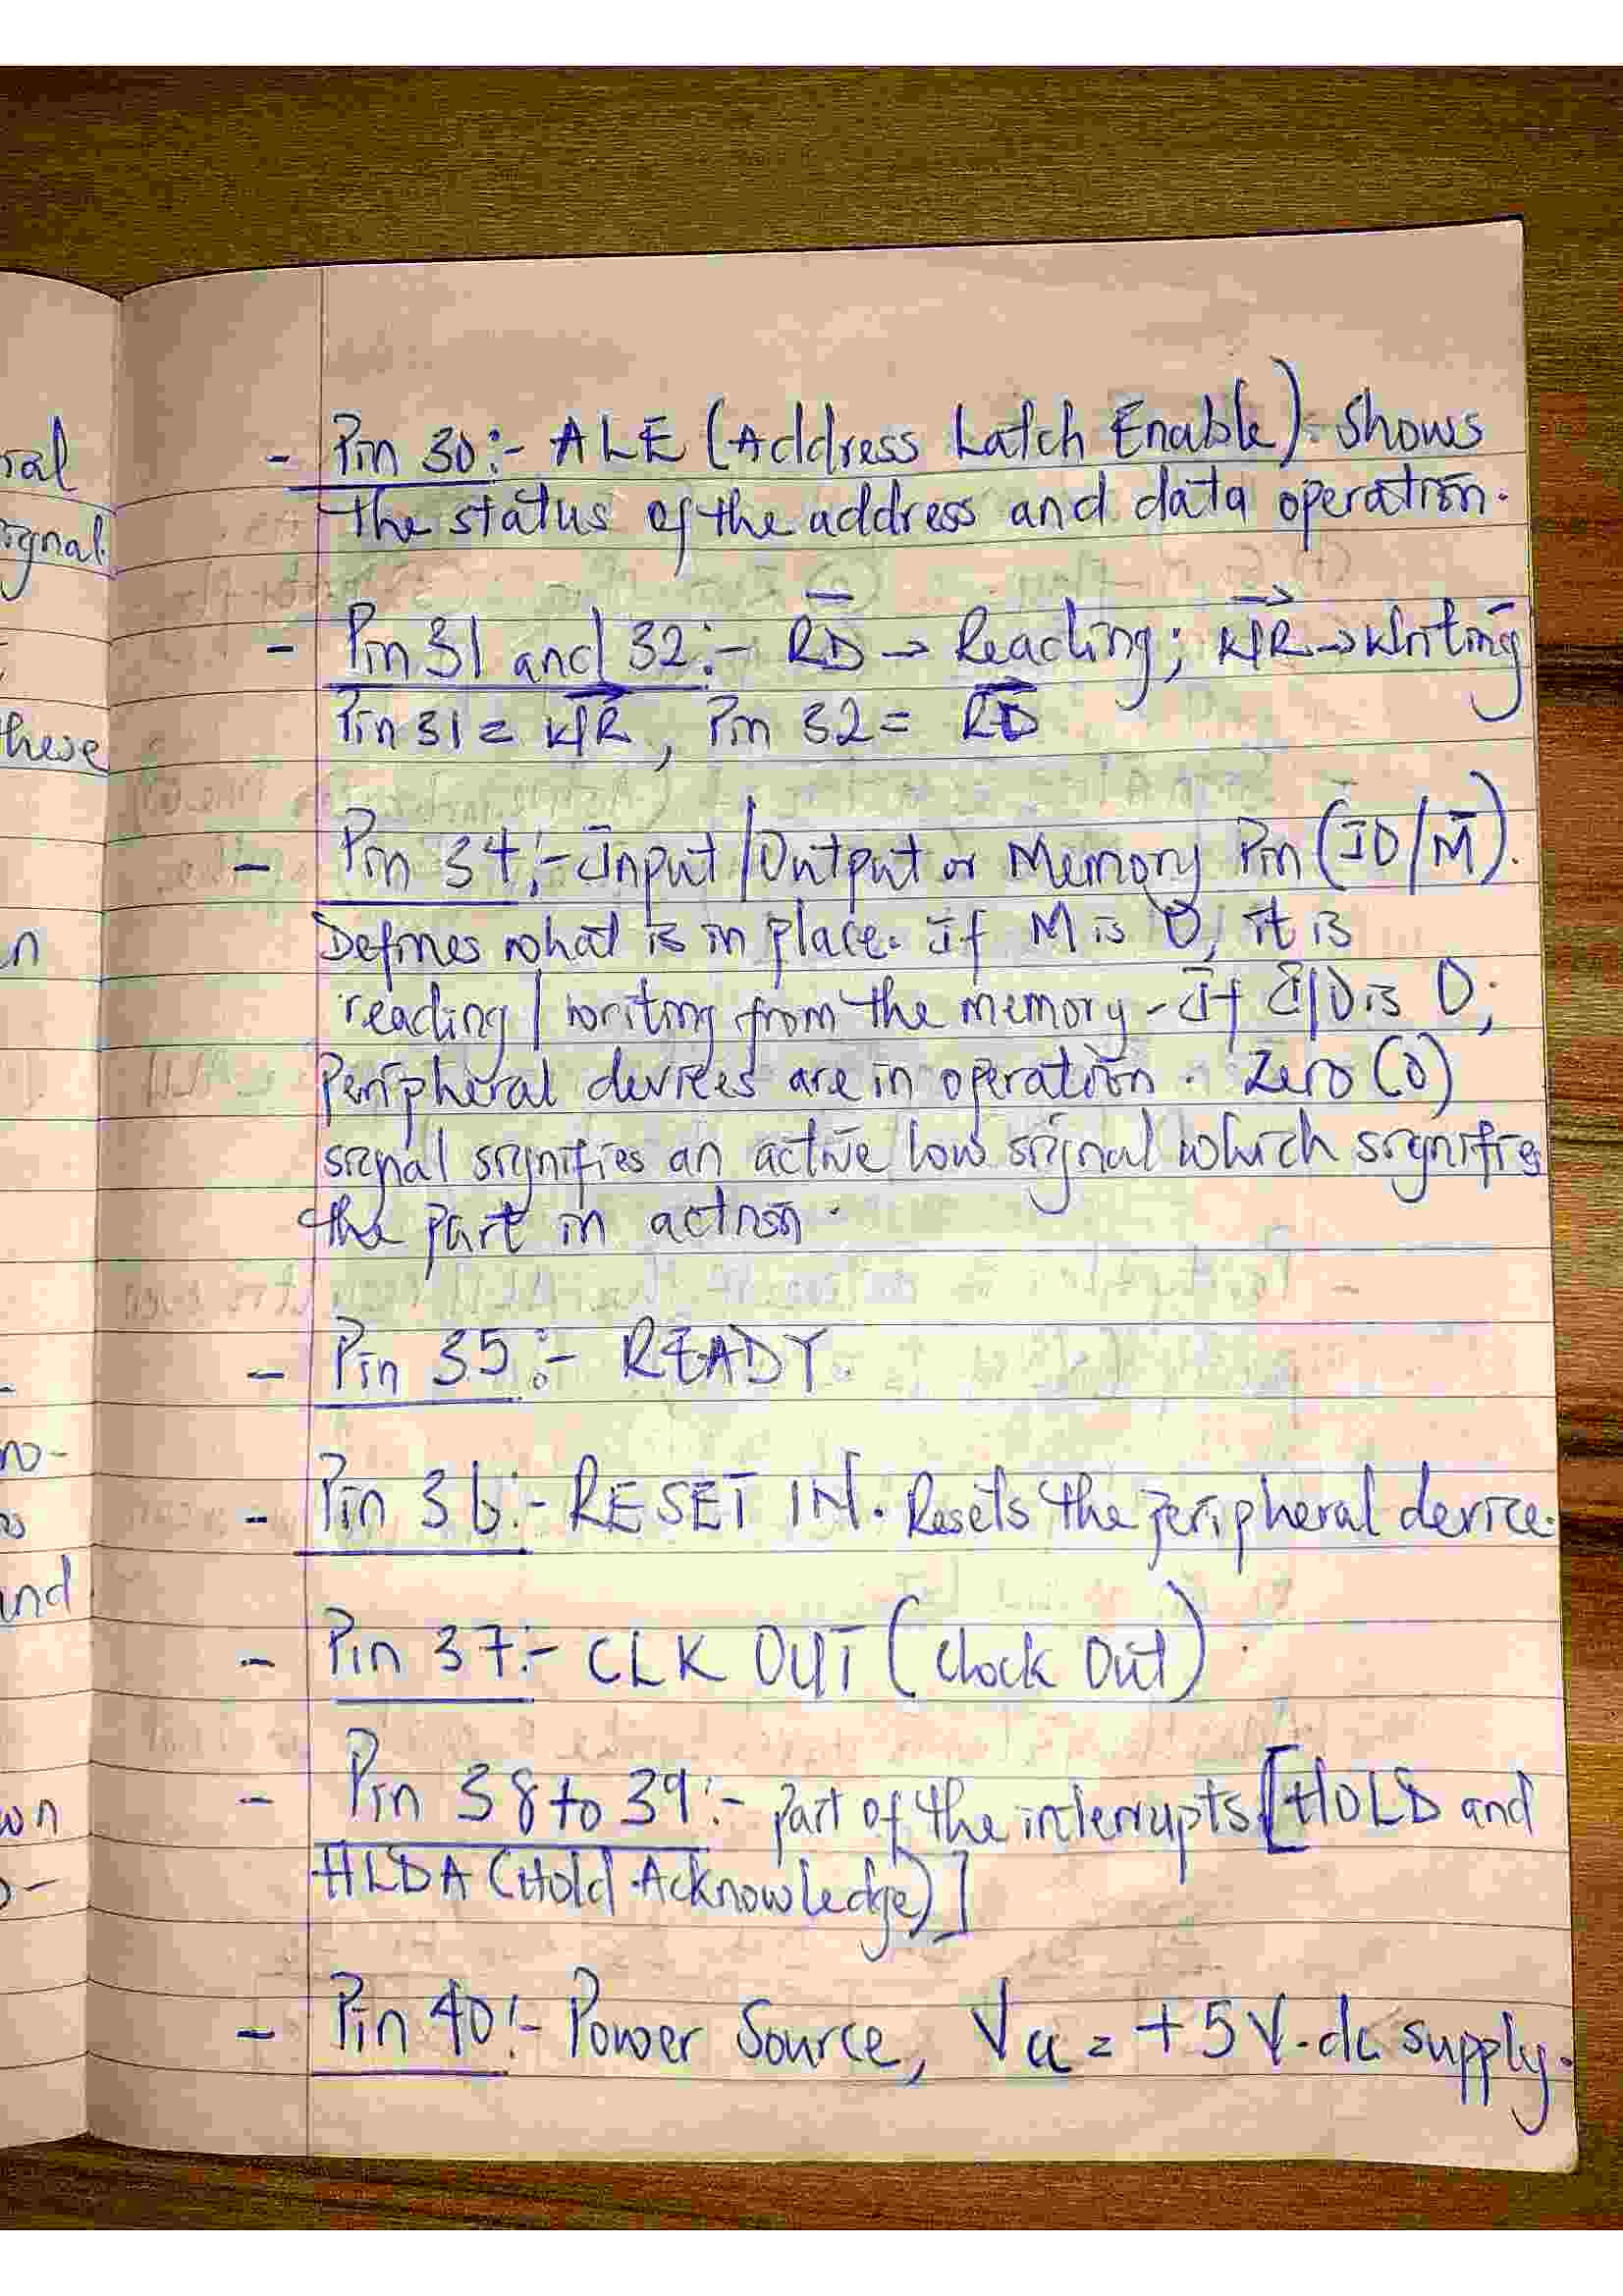 - Pin 30:- ALE (Address Latch Enable). Shows
the status of the address and data operation.
- Pin 31 and 32:- R̅D̅ → Reading; W̅R̅ → Writing
Pin 31 = W̅R̅, Pin 32 = R̅D̅
- Pin 34:- Input/Output or Memory Pin (IO/M̅).
Defines what is in place. If M is 0, it is
reading/writing from the memory - If I/O is 0;
Peripheral devices are in operation. Zero (0)
signal signifies an active low signal which signifies
the part in action.
- Pin 35:- READY.
- Pin 36:- RESET IN. Resets the peripheral device.
- Pin 37:- CLK OUT (Clock Out).
- Pin 38 to 39:- part of the interrupts [HOLD and
HLDA (Hold Acknowledge)]
- Pin 40:- Power Source, Vcc = +5V. dc supply.
ral
ignal
these
n
no-
and
wn